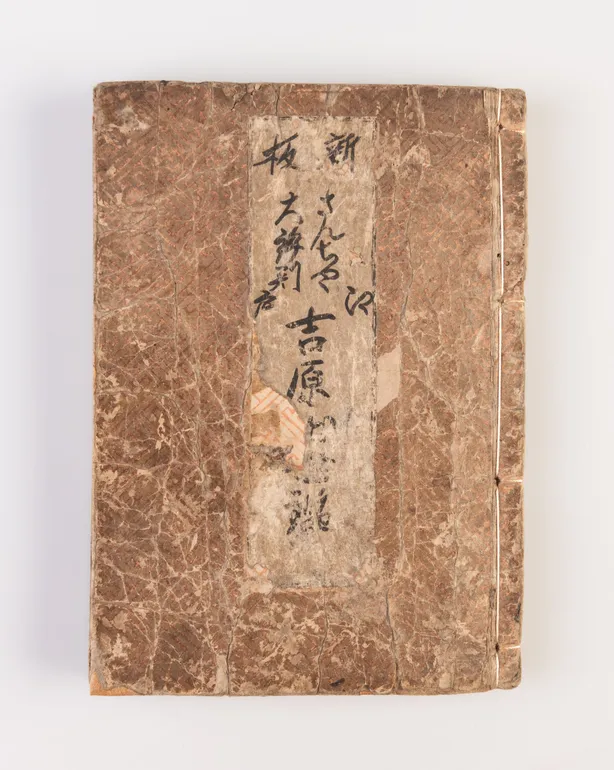 新板
さんちや
大評判
江戸
吉原
鑑